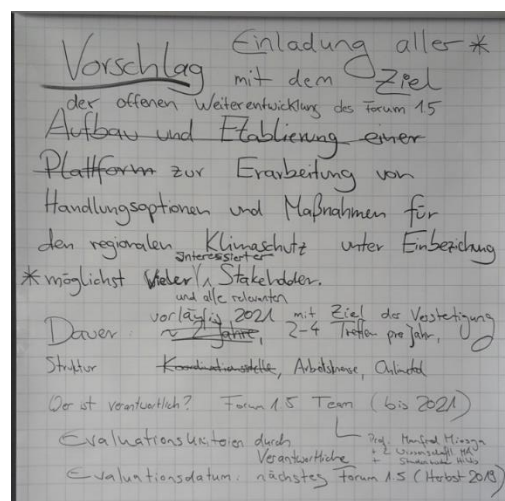 Vorschlag Einladung aller *
mit dem Ziel
der offenen Weiterentwicklung des Forum 1.5
Aufbau und Etablierung einer
Plattform zur Erarbeitung von
Handlungsoptionen und Maßnahmen für
den regionalen Klimaschutz unter Einbeziehung
interessierter
* möglichst vieler Stakeholder.
und alle relevanten
vorläufig 2021 mit Ziel der Verstetigung
Dauer: ~ 2 Jahre, 2-4 Treffen pro Jahr,
Struktur Koordinationsstelle, Arbeitskreise,
Wer ist verantwortlich? Forum 1.5 Team (bis 2021)
Prof. Manfred Miosga
Evaluationskriterien durch + 2 Wissenschaftl.
Verantwortliche +
Evaluationsdatum: nächstes Forum 1.5 (Herbst 2019)